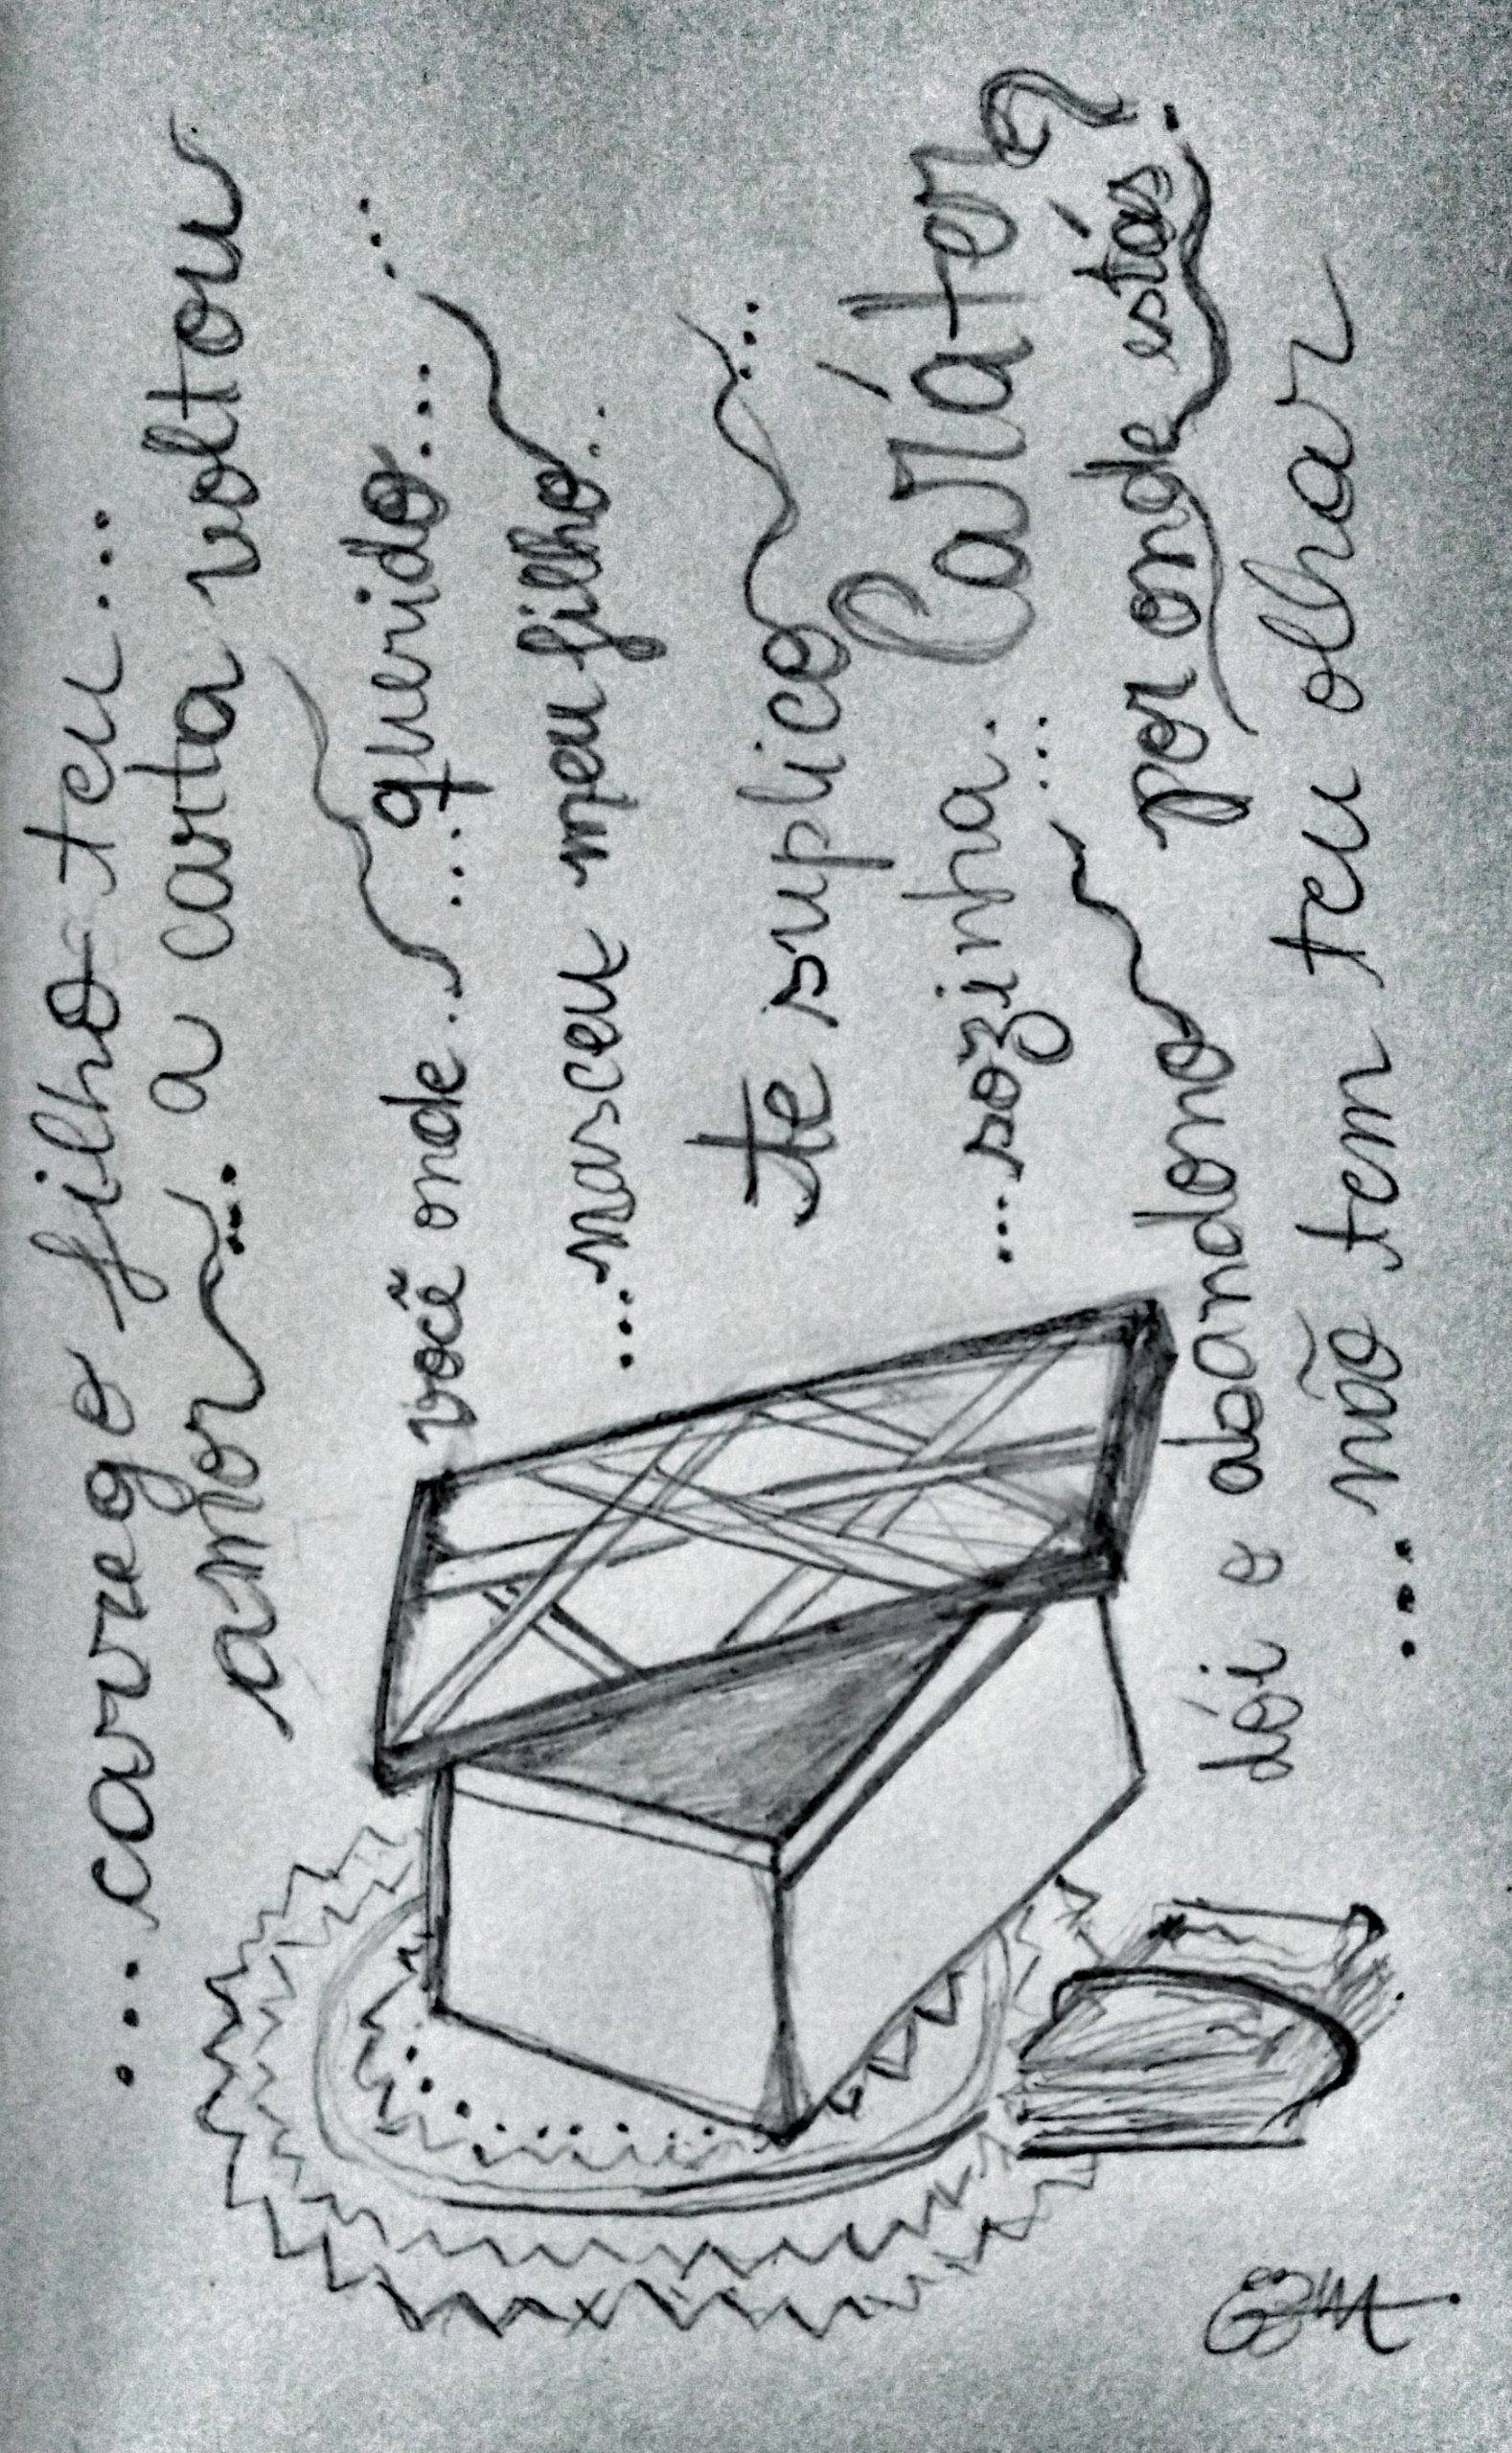 ...carrego filho teu...
amor... a carta voltou
você onde... ...querido... ...
...nasceu meu filho...
te suplico ...
...sózinha. ... Caráter?
dói o abandono por onde estás.
...não tem teu olhar